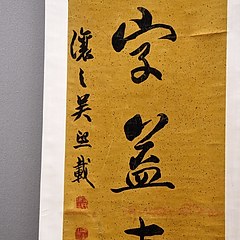 学益
讓之吳熙載